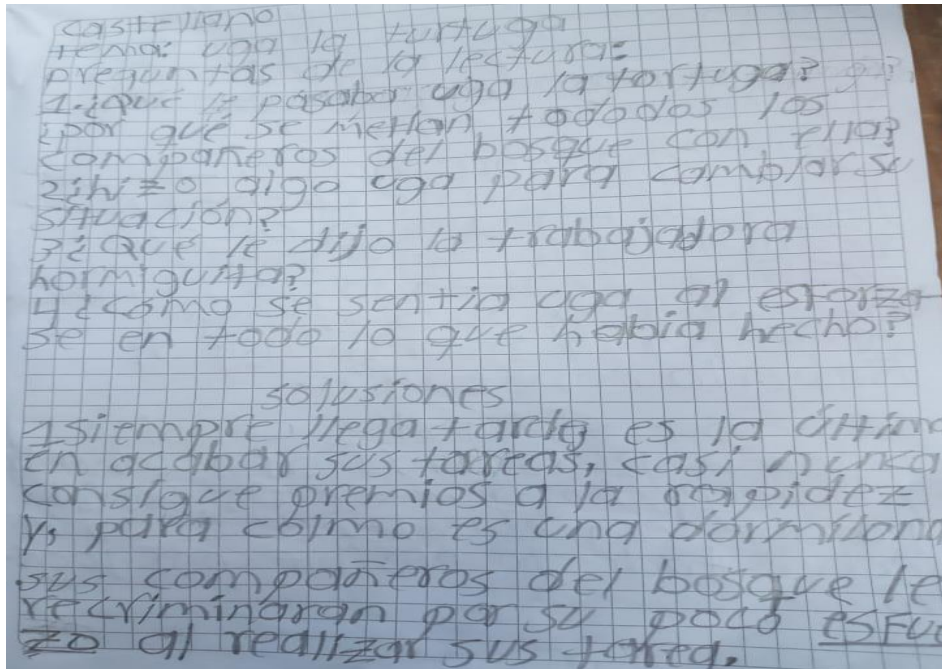 castellano
tema: uga la turtuga
preguntas de la lectura:
1.¿Qué le pasaba uga la tortuga?
¿por qué se metian tododos los
compañeros del bosque con ella?
2¿hizo algo uga para cambiar su
situación?
3¿Que le dijo la trabajadora
hormiguita?
4¿como se sentia uga al esforza
se en todo lo que habia hecho?
solusiones
1siempre llega tarde es la últim
en acabar sus tareas, casi nunca
consigue premios a la rapidez
y, para colmo es una dormilona
sus compañeros del bosque le
recriminaran por su poco esfue
zo al realizar sus tarea.